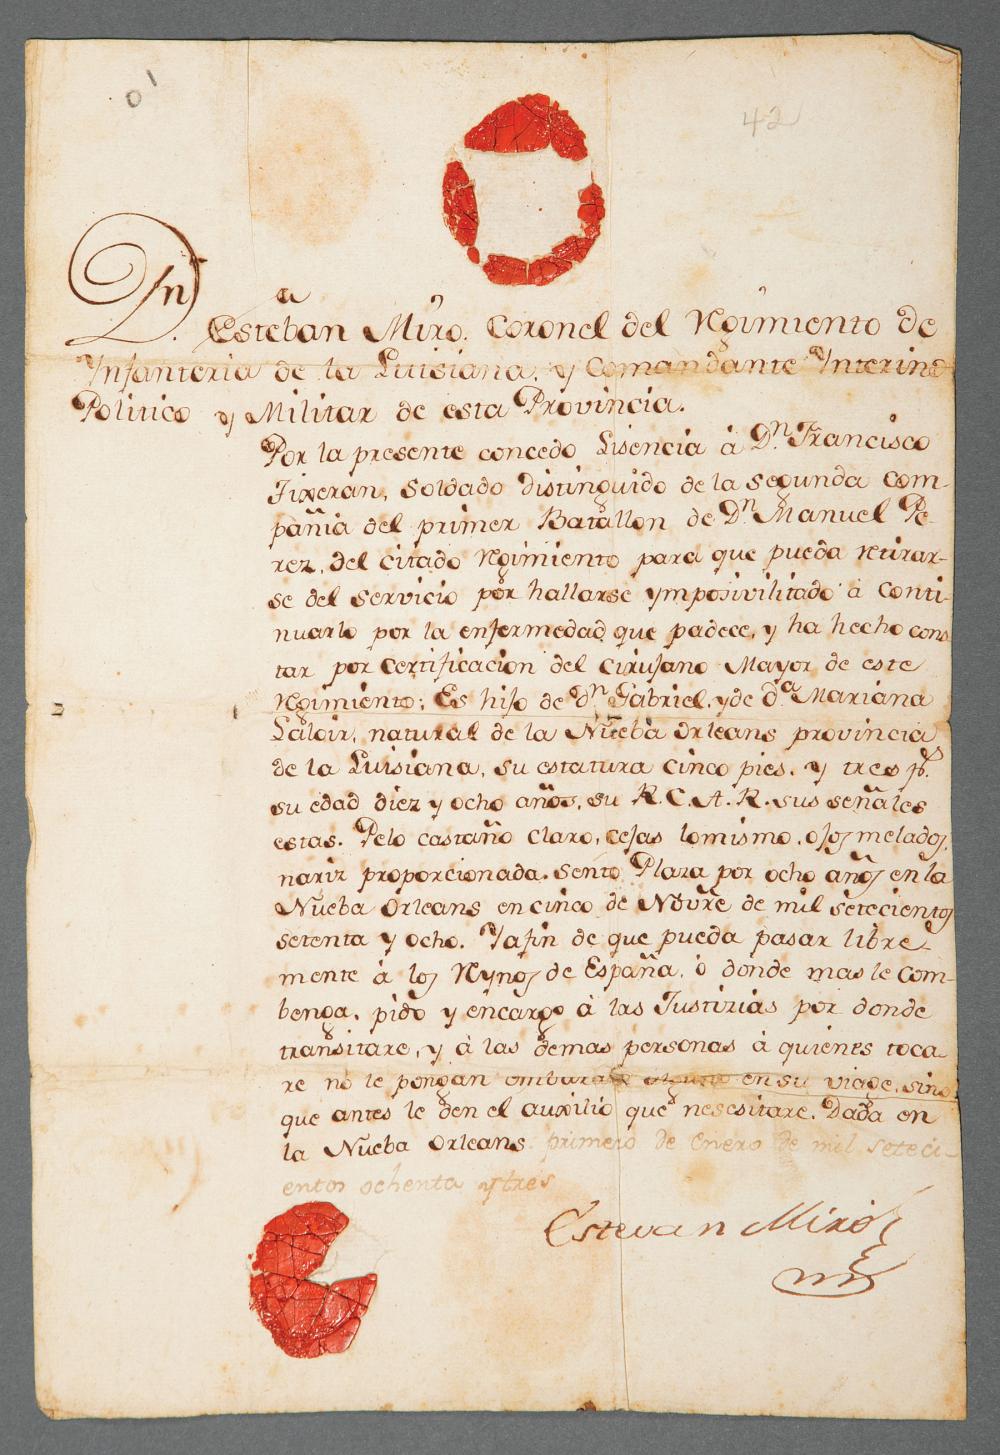 42
Dn. Esteban Miro. Coronel del Rgimiento de
Ynfanteria de la Luisiana, y Comandante Ynterino
Politico y Militar de esta Provincia.
Por la presente concedo Lisencia à Dn. Francisco
Fixeran, Soldado distinguido de la segunda Com-
pañia del primer Batallon de Dn. Manuel Pe-
rez, del citado Rgimiento para que pueda retirar-
se del servicio por hallarse ymposivilitado à Conti-
nuarlo por la enfermedad que padece, y ha hecho cons
tar por Certificacion del Cirujano Mayor de este
Rgimiento; Es hijo de Dn. Gabriel, y de da. Mariana
Laloir, natural de la Nueba Orleans provincia
de la Luisiana, su estatura cinco pies, y tres ps.
su edad diez y ocho años, su R. C. A. R. sus señales
estas. Pelo castaño claro, cejas lo mismo, ojos melados,
nariz proporcionada. Sentó Plaza por ocho años en la
Nueba Orleans en cinco de Novre de mil setecientos
setenta y ocho. Y afin de que pueda pasar libre-
mente à los Rynos de España, ò donde mas le Com-
benga, pido y encargo à las Justizias por donde
transitare, y à las demas personas à quienes toca
re no le pongan embarazo alguno en su viage, sino
que antes le den el auxilio que nesesitare. Dada en
la Nueba Orleans primero de Enero de mil seteci-
entos ochenta y tres
Estevan Miró